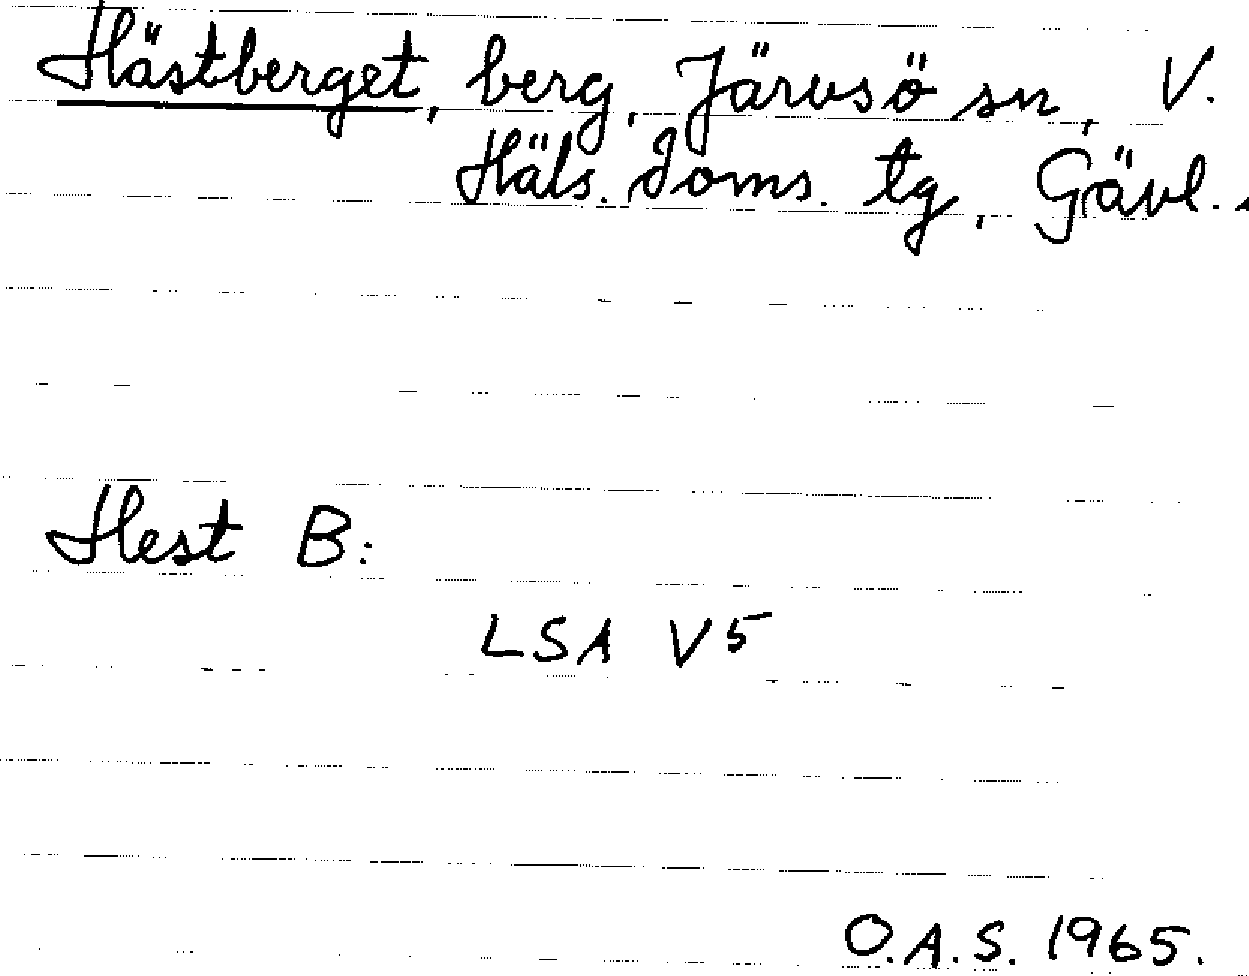 Hästberget, berg, Järvsö sn, V.
Häls. Doms. tg, Gävl..
Hest B:
LSA V5
O.A.S. 1965.